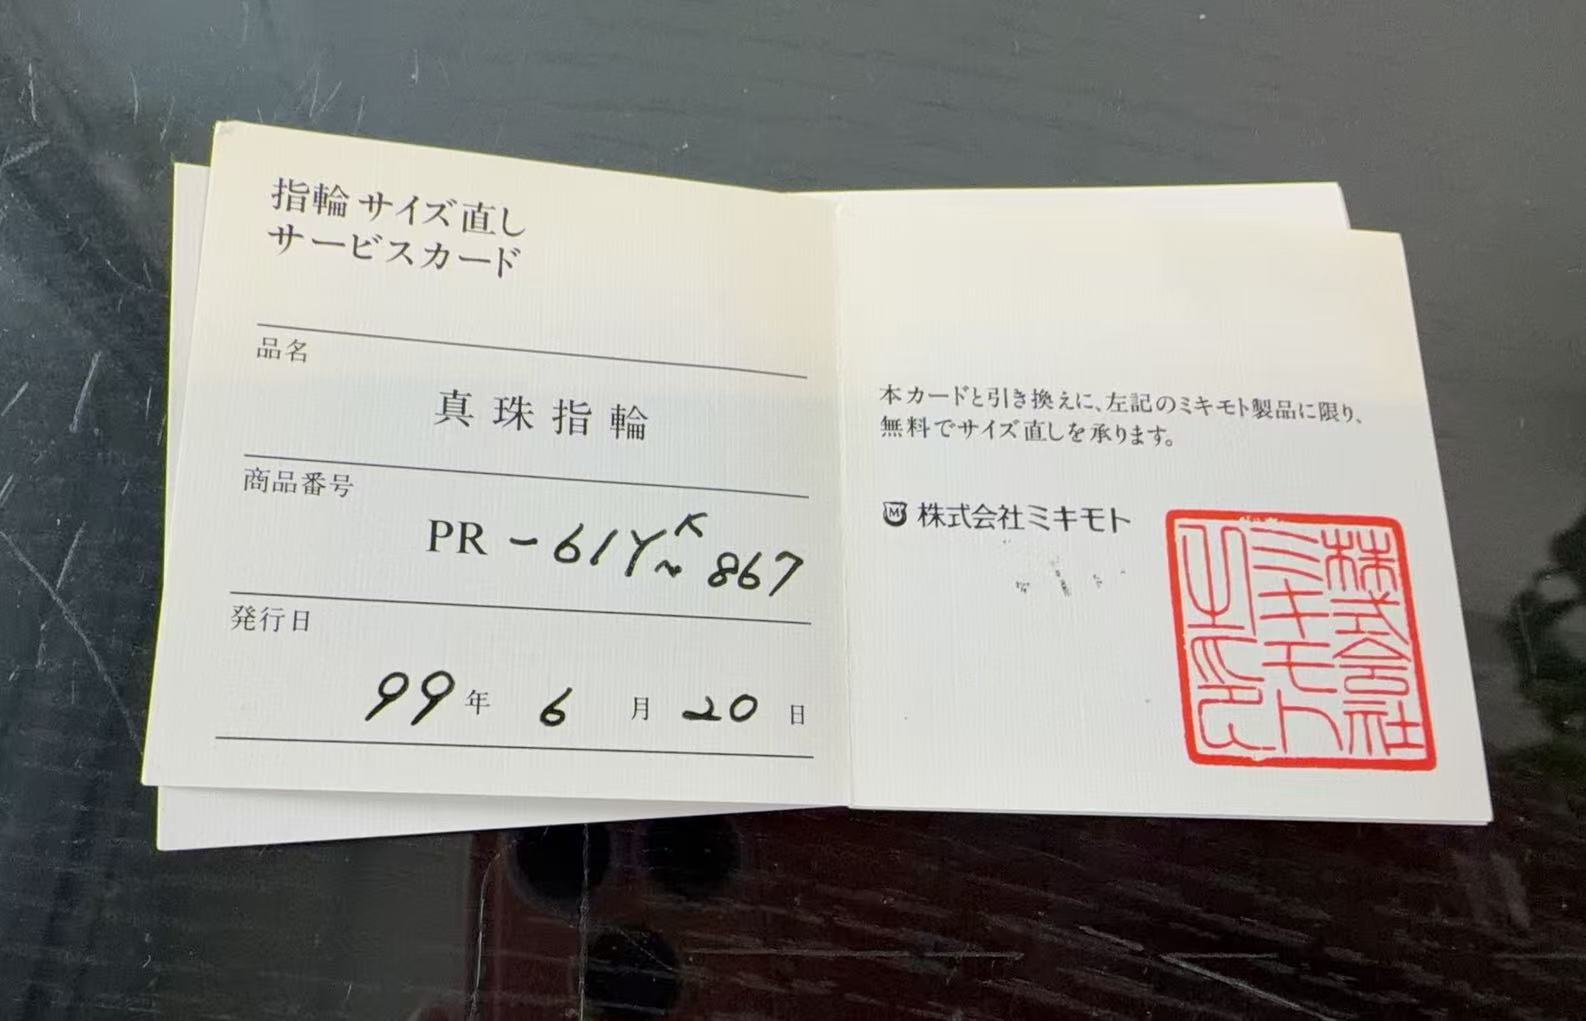 指輪サイズ直し
サービスカード
品名
真珠指輪
商品番号
PR-61YK~867
発行日
99年6月20日
本カードと引き換えに、左記のミキモト製品に限り、
無料でサイズ直しを承ります。
M 株式会社ミキモト
株式会社
ミキモト
之印